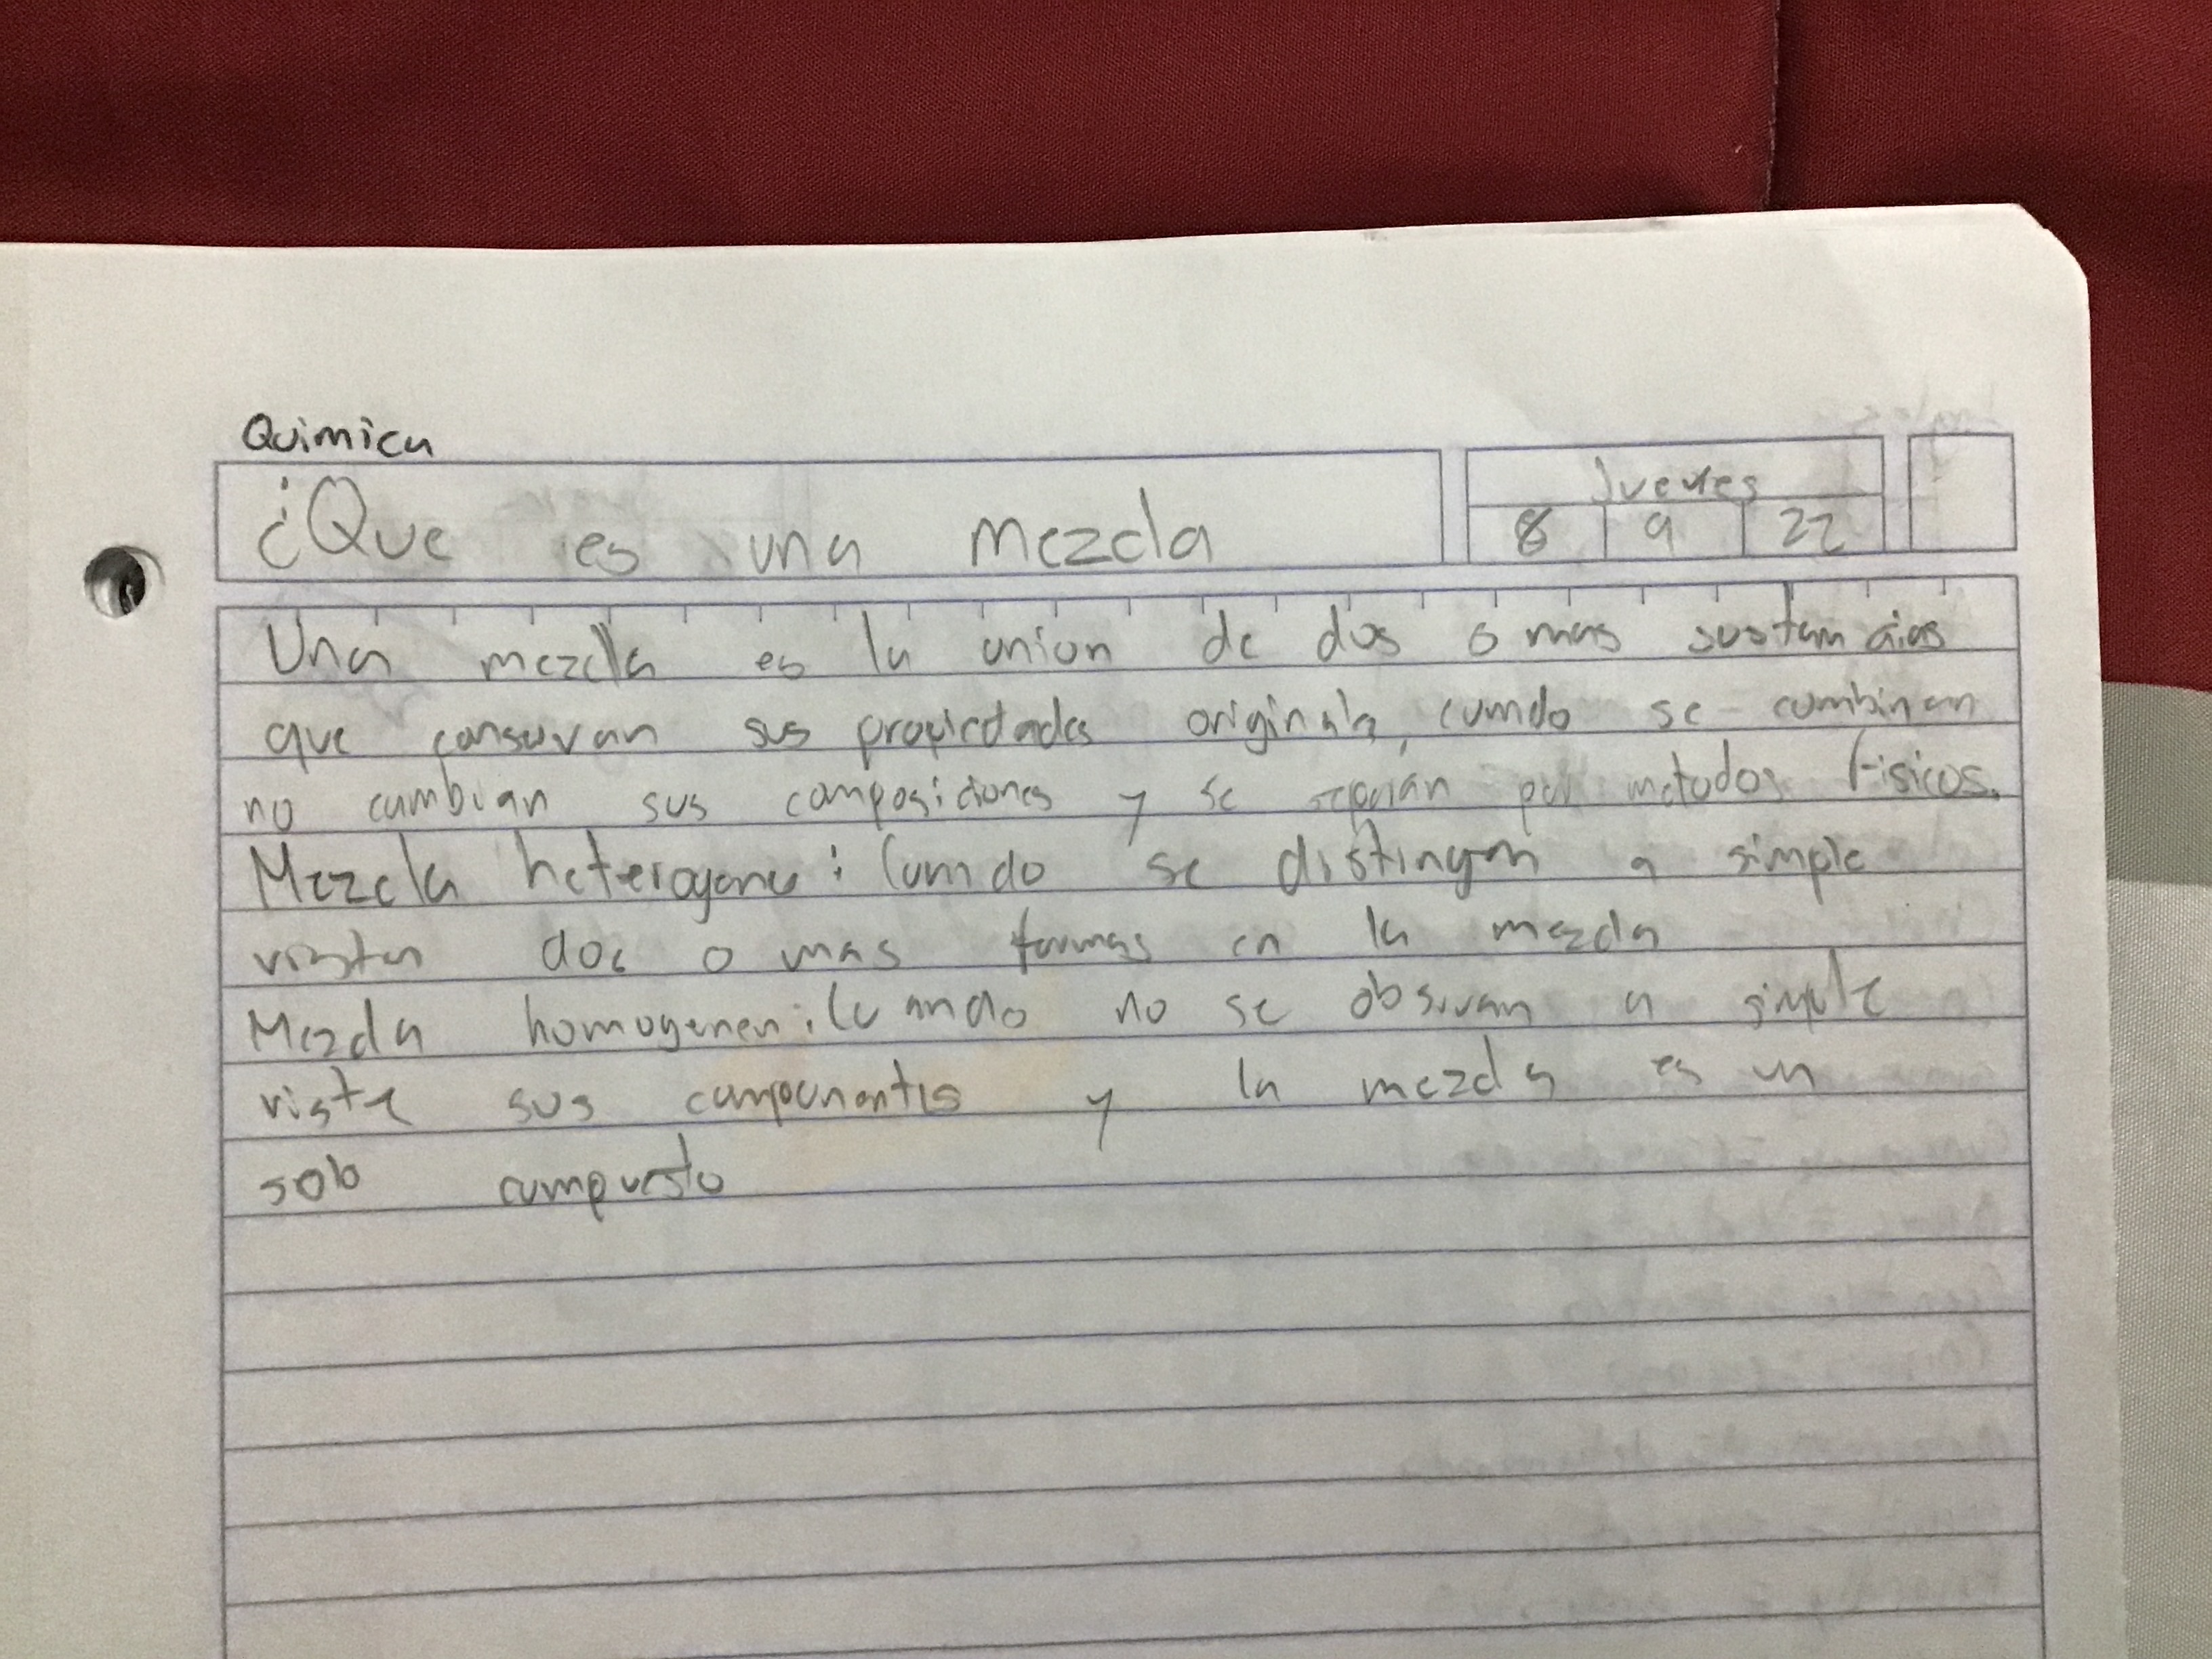 Quimica
¿Que es una mezcla
Jueves
8 9 22
Una mezcla es la union de dos o mas sustancias
que conservan sus propiedades originales, cuando se combinan
no cambian sus composiciones y se separan por metodos fisicos.
Mezcla heterogenea: Cuando se distinguen a simple
vista dos o mas formas en la mezcla
Mezcla homogenea: Cuando no se observan a simple
vista sus componentes y la mezcla es un
solo compuesto